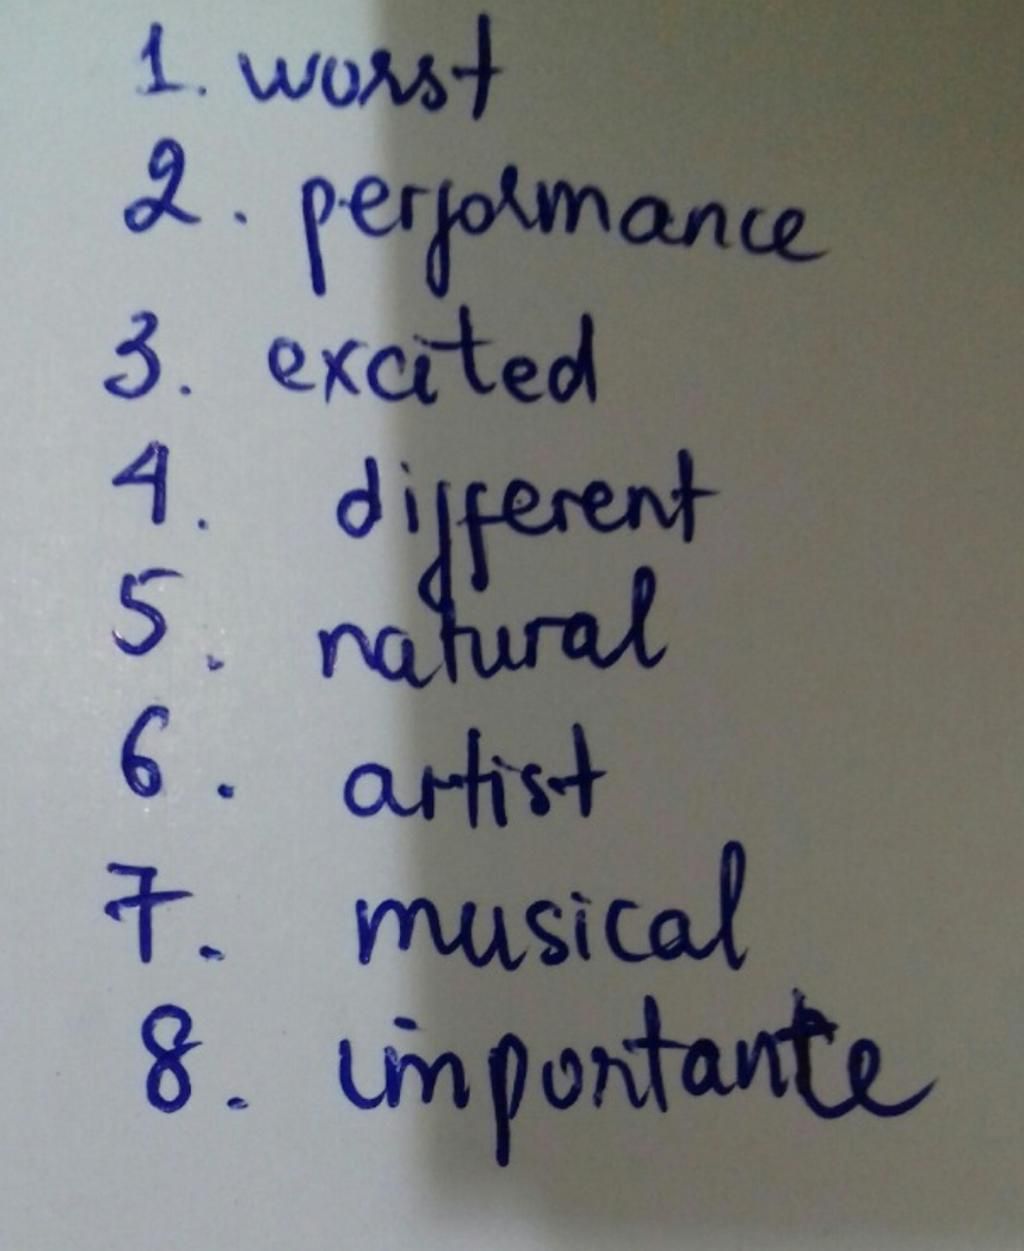 1. worst
2. performance
3. excited
4. different
5. natural
6. artist
7. musical
8. importante